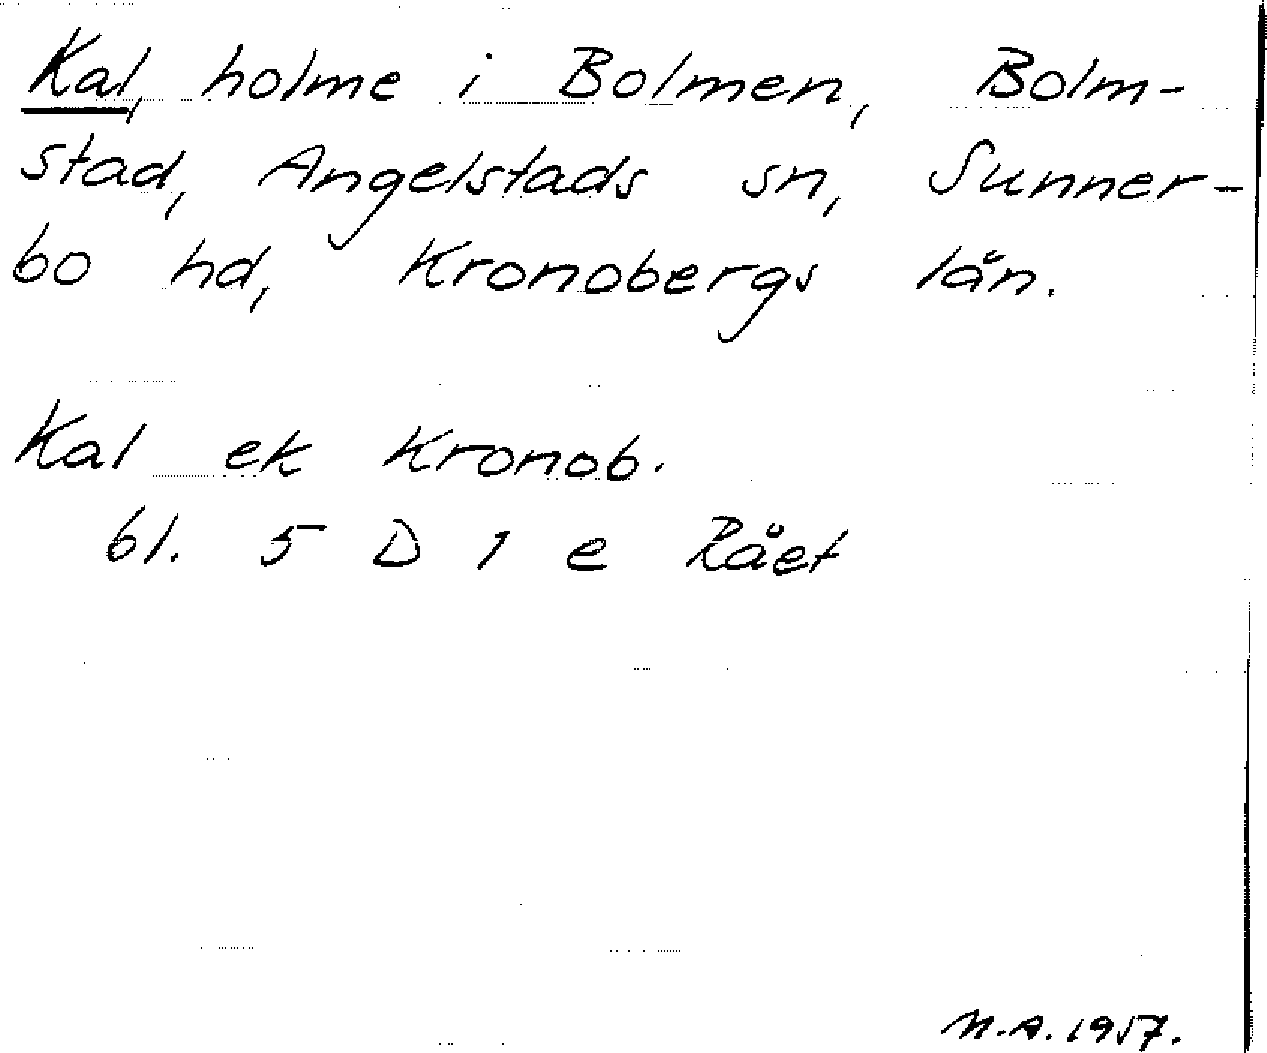 Kal, holme i Bolmen, Bolm-
stad, Angelstads sn, Sunner-
bo hd, Kronobergs län.
Kal ek Kronob.
bl. 5 D 1 e Rået
N.A. 1957.